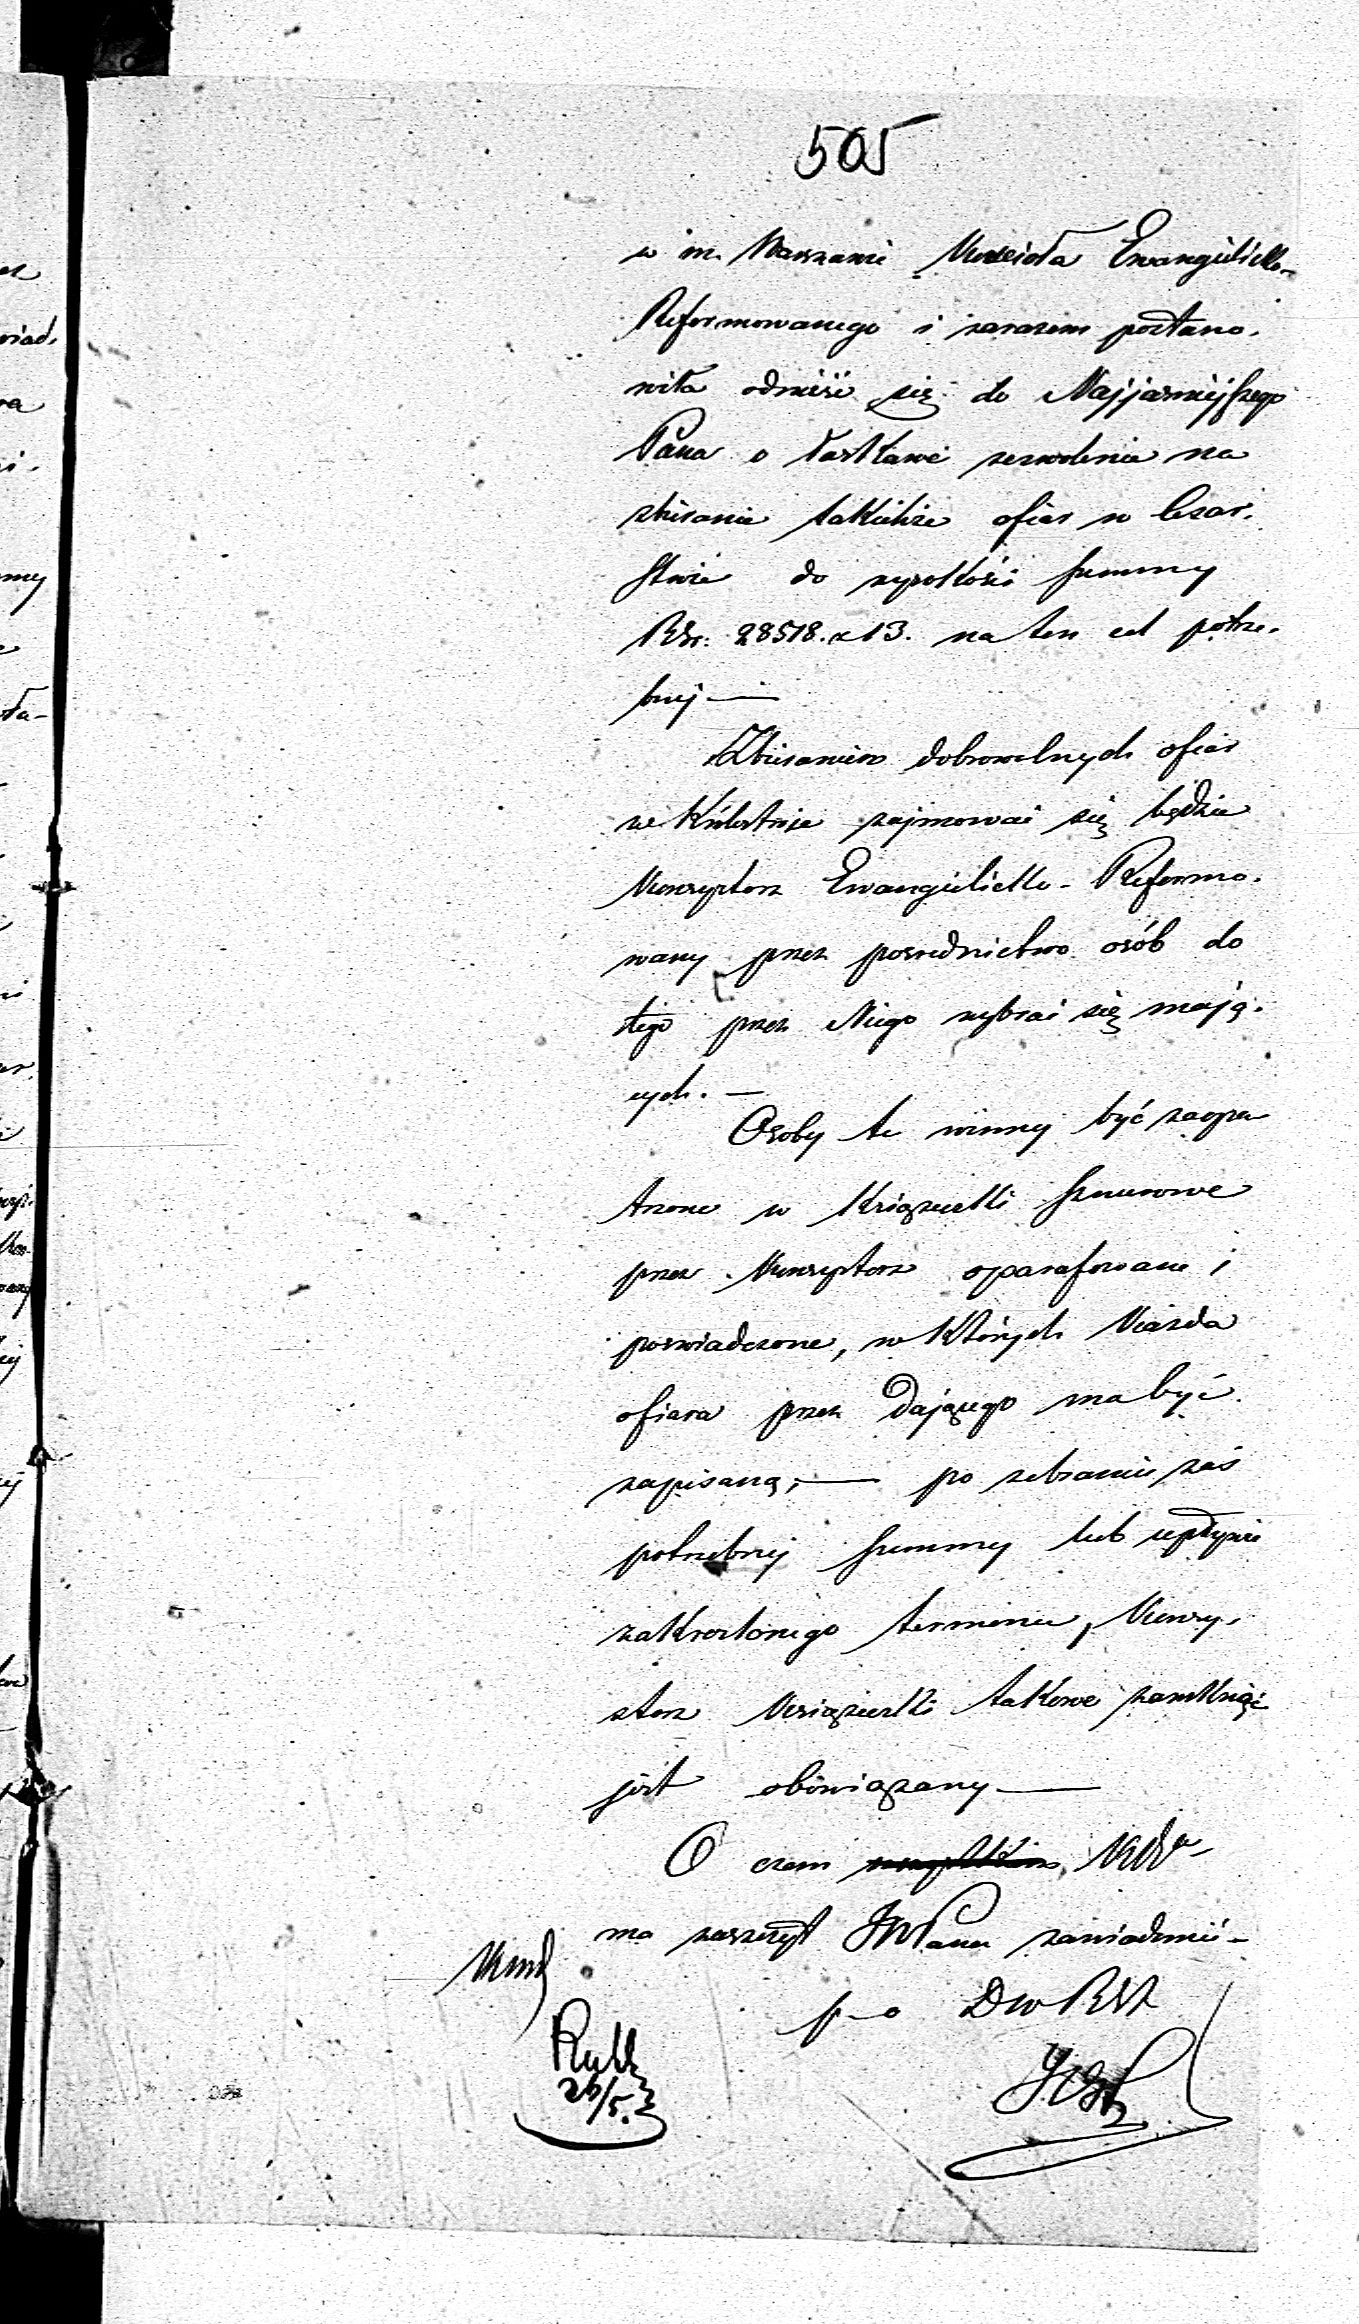 505
w m. Warszawie Kościoła Ewangielicko-
Reformowanego i zarazem postano-
wiła odnieść się do Najjaśniejszego
Pana o łaskawe zezwolenie na
zbieranie takichże ofiar w Cesar-
stwie do wysokości summy
RSr. 28518. k 13. na ten cel potrze-
bnej —
Zbieraniem dobrowolnych ofiar
w Królestwie zajmować się będzie
Konsystorz Ewangielicko-Reformo-
wany przez pośrednictwo osób do
tego przez Niego wybrać się mają-
cych. —
Osoby te winny być zaopa-
trzone w Książeczki sznurowe
przez Konsystorz oparafowane i
poswiadczone, w których Każda
ofiara przez dającego ma być
zapisaną; — po zebraniu zaś
potrzebnej summy lub upływie
zakreślonego terminu, Konsy-
storz Książeczki takowe zamknąć
jest obowiązany —
O czem
ma zaszczyt JWPana zawiadomić -
p. o
26/5.